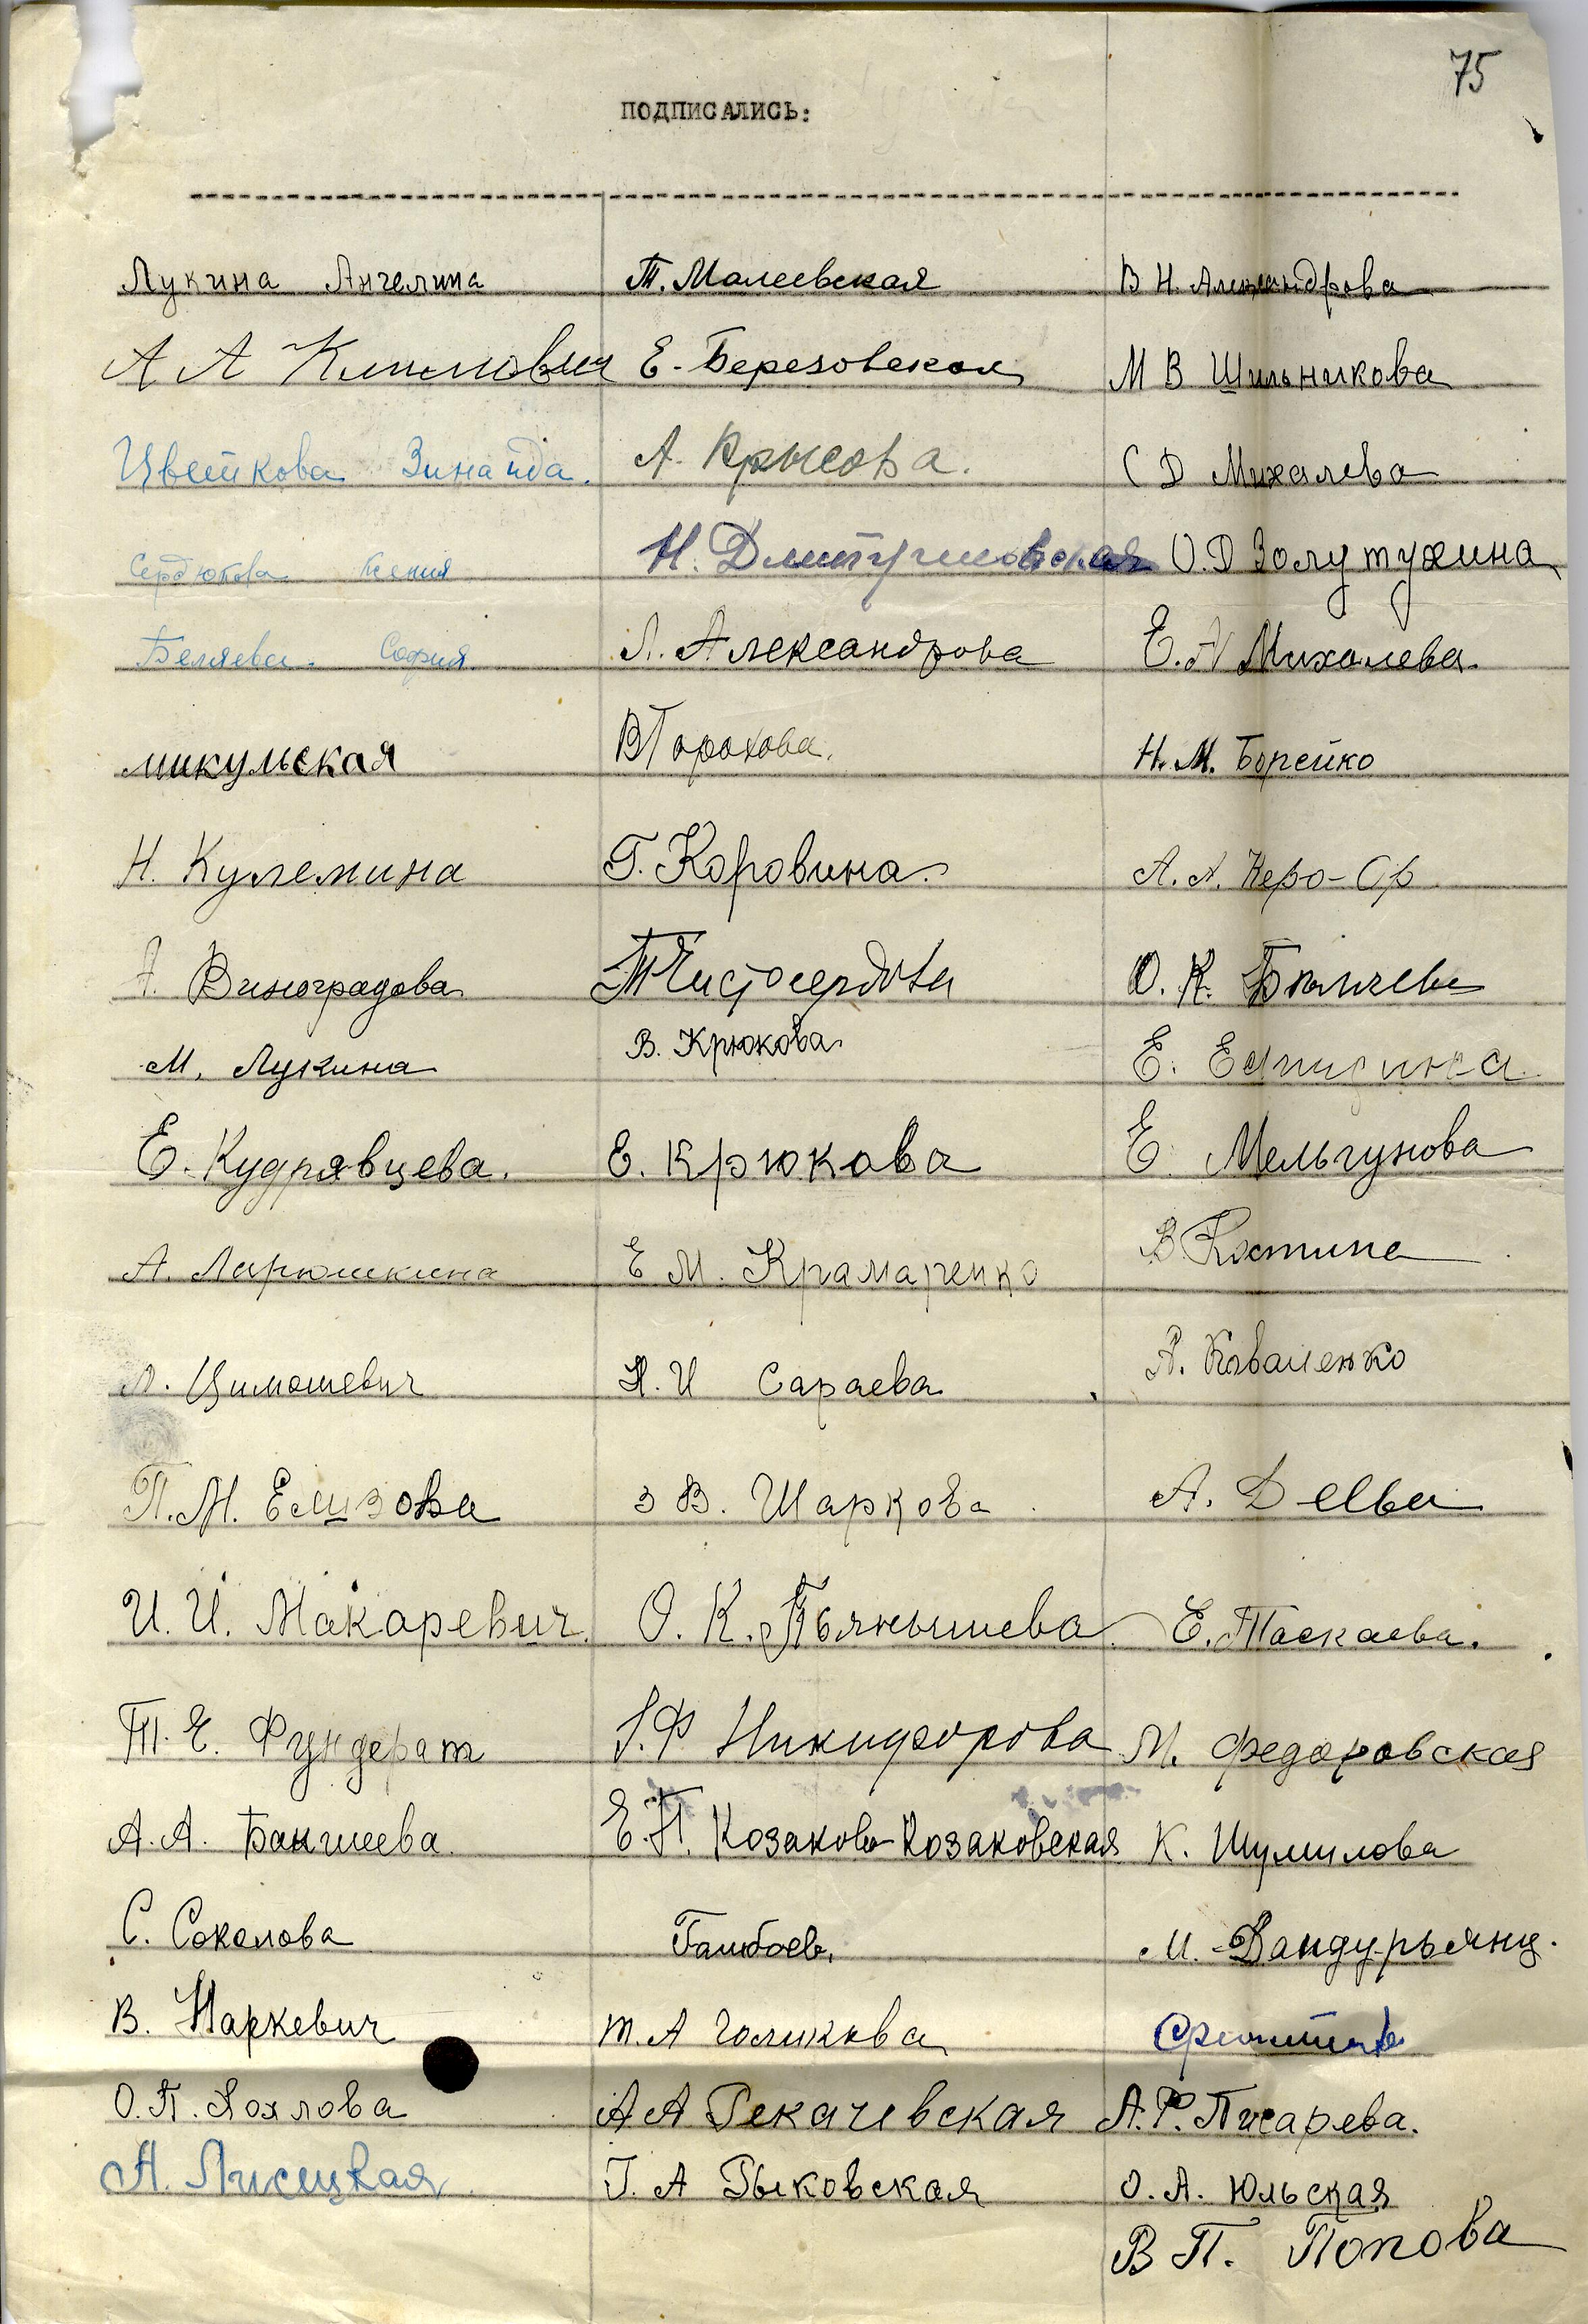 75
ПОДПИСАЛИСЬ:
Лукина Ангелина
А А Климович
Цветкова Зинаида.
Сердюкова Ксения
Беляева София
микульская
Н. Кулемина
А. Виноградова
М. Лукина
Е. Кудрявцева.
А. Ларюшкина
Цимошевич
П.М. Елизова
И. И. Макаревич.
Т. Е. Фундерат
А. А. Бакшеева.
С. Соколова
В. Наркевич
О. П. Хохлова
А. Лисецкая
Т. Малеевская
Е. Березовская
А. Крысова.
Н.
Л. Александрова
В Горохова.
Г. Коровина.
Т Чистосердова
В. Крюкова
Е. Крюкова
Е М. Крамаренко
Н. И Сараева
З В. Шаркова
О. К. Пьянышева
Г. Ф Никифорова
Е. П. Козакова-Козаковская
Т. А Голикова
А А Рекачевская
Г. А Быковская
В Н. Александрова
М В Шильникова
С Д Михалева
О. Д Золутухина
Е. Михалева.
Н. М. Борейко
А. А. Керо-
О. К.
Е.
Е Мельгунова
В Костина
А. Коваленко
А.
Е. Таскаева.
М. Федоровская
К. Шумилова
М. Вандурьянц.
А. Ф. Писарева.
О. А. Юльская
В П. Попова